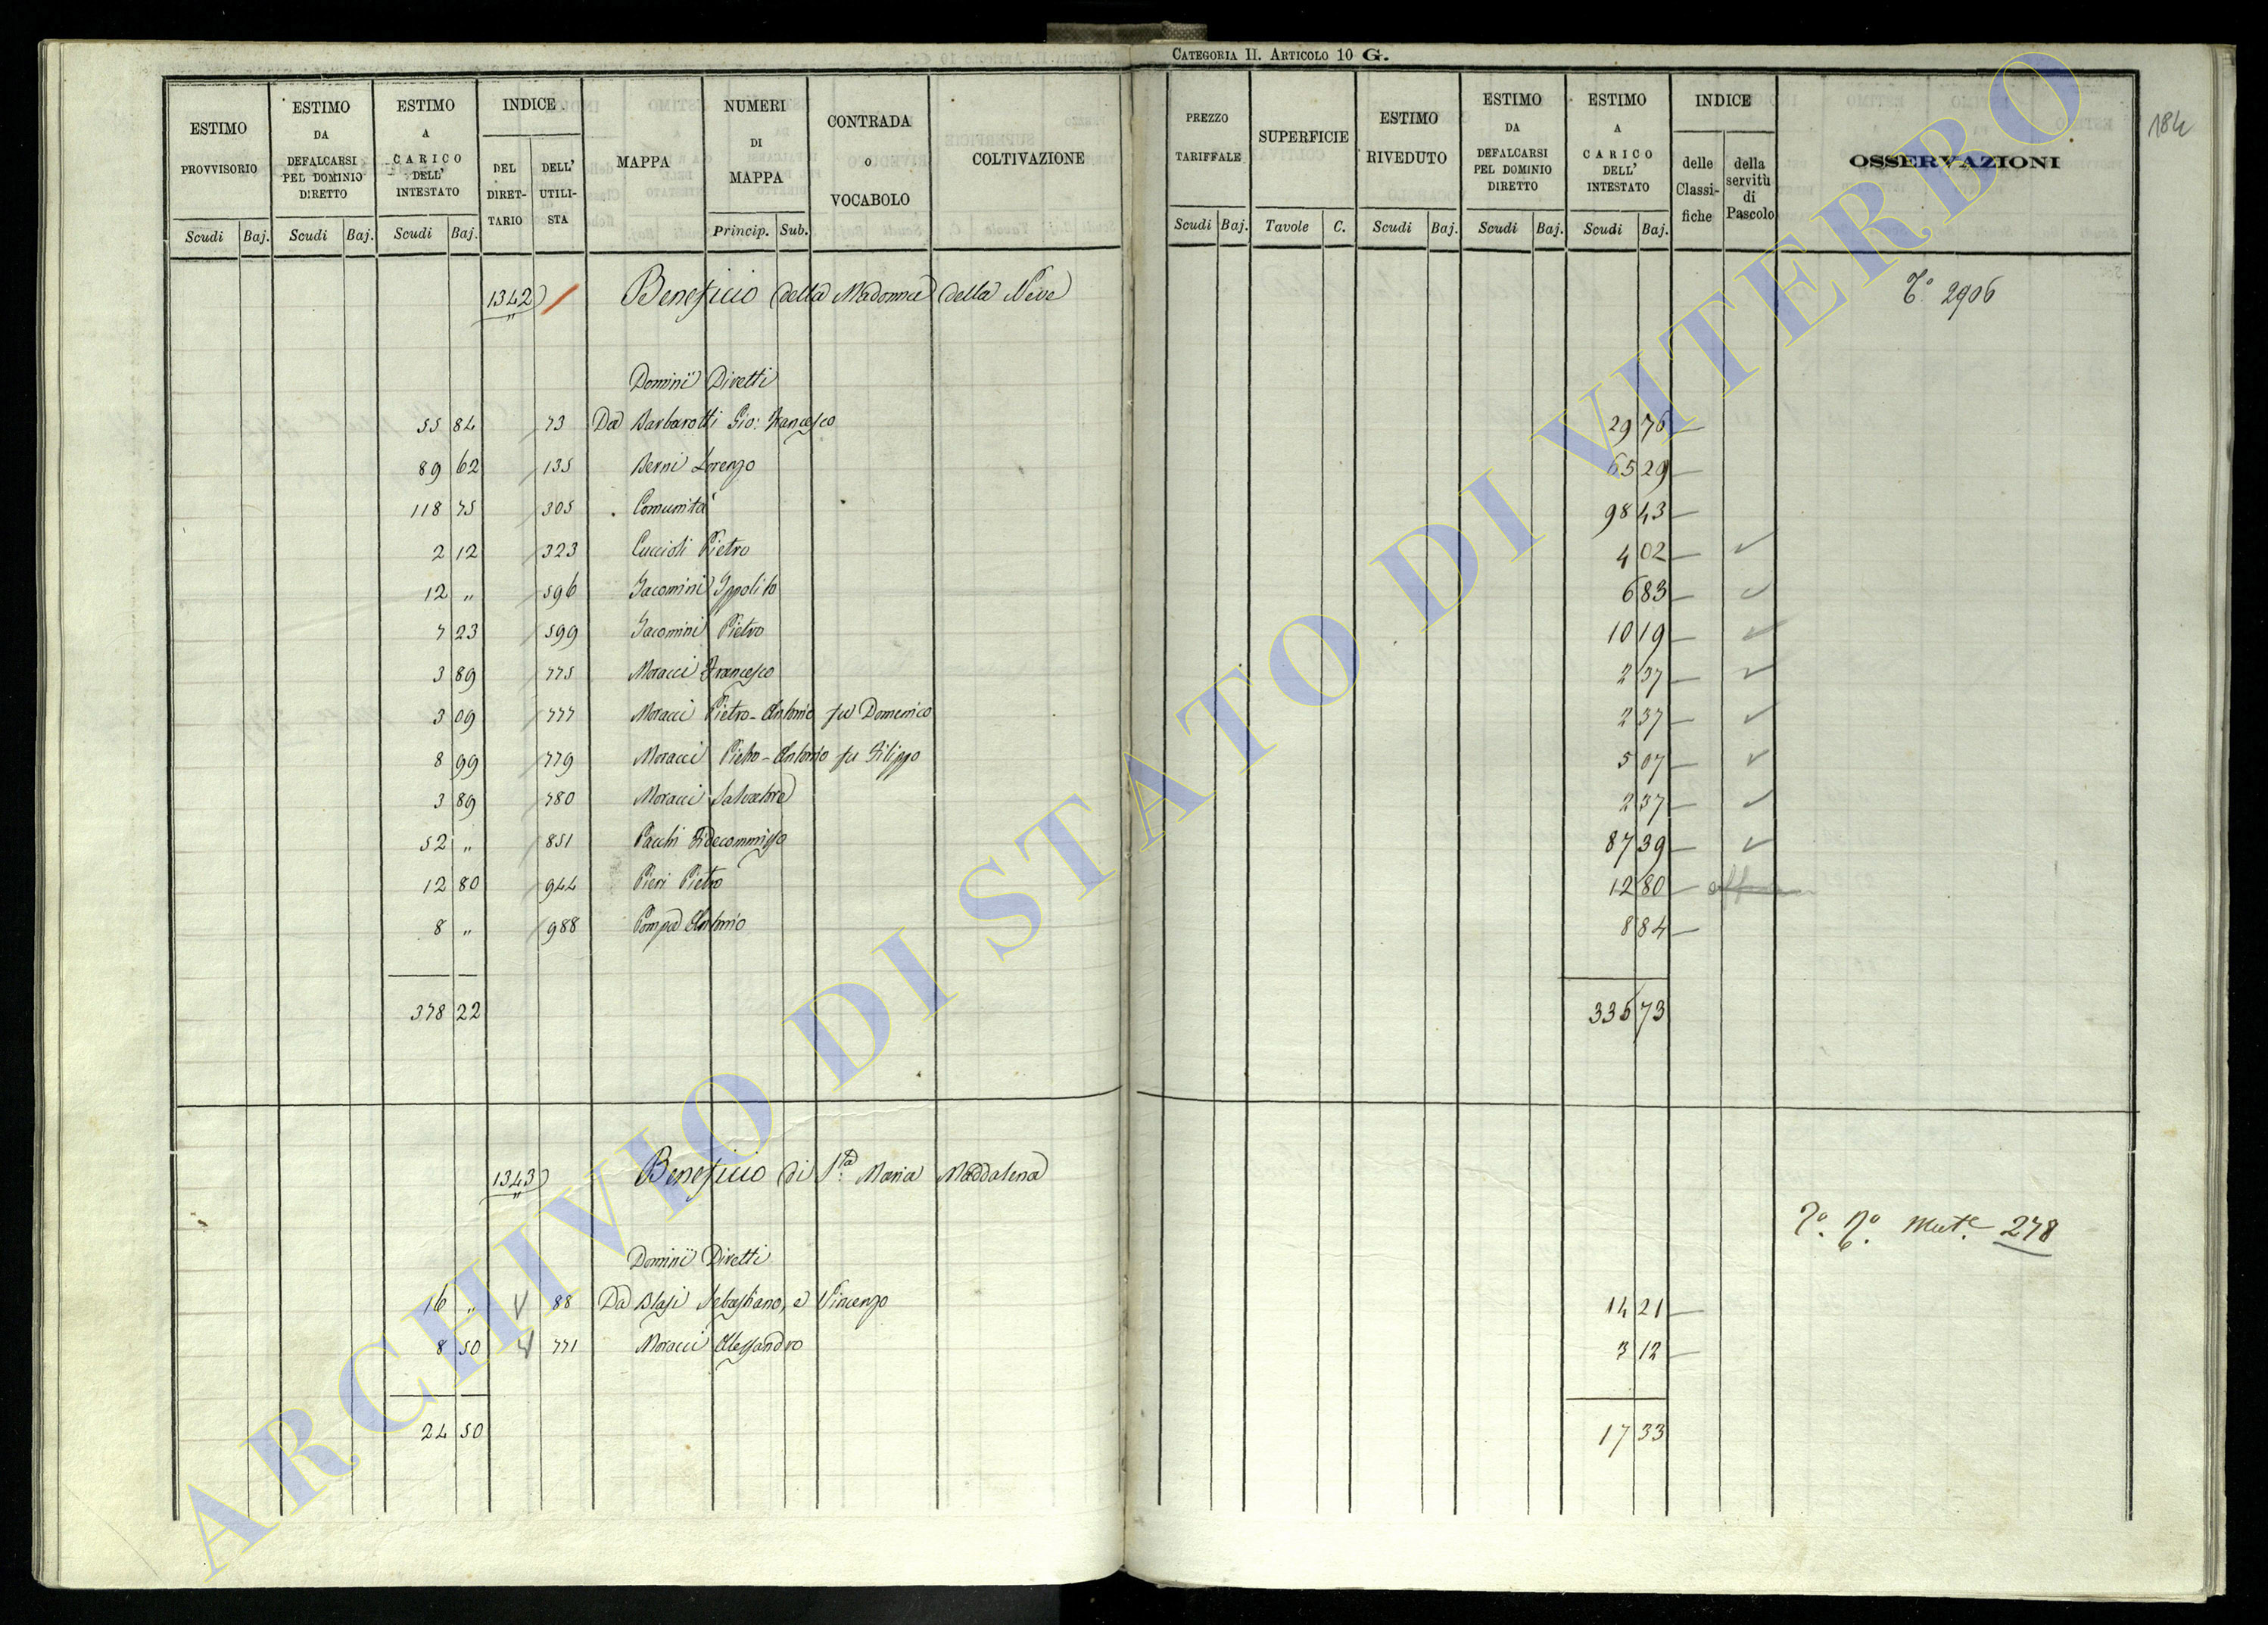 CATEGORIA II. ARTICOLO 10 G.
184
ESTIMO PROVVISORIO
ESTIMO DA DEFALCARSI PEL DOMINIO DIRETTO
ESTIMO A CARICO DELL' INTESTATO
INDICE
DEL DIRET-TARIO
DELL' UTILI-STA
MAPPA
NUMERI DI MAPPA
CONTRADA o VOCABOLO
COLTIVAZIONE
Scudi Baj. Scudi Baj. Scudi Baj. Princip. Sub.
PREZZO TARIFFALE
SUPERFICIE
ESTIMO RIVEDUTO
ESTIMO DA DEFALCARSI PEL DOMINIO DIRETTO
ESTIMO A CARICO DELL' INTESTATO
INDICE
delle Classi-fiche
della servitù di Pascolo
OSSERVAZIONI
Scudi Baj. Tavole C. Scudi Baj. Scudi Baj. Scudi Baj.
1342) Beneficio della Madonna della Neve 2906
Dominii Diretti
55 84 73 Da Barbarotti Gio: Francesco 29 76
89 62 135 Berni Lorenzo 65 29
118 75 305 Comunità 98 43
2 12 323 Cuccioli Pietro 4 02
12 „ 596 Jacomini Ippolito 6 83
7 23 599 Jacomini Pietro 10 19
3 89 775 Moracci Francesco 2 37
3 09 777 Moracci Pietro-Antonio fu Domenico 2 37
8 99 779 Moracci Pietro-Antonio fu Filippo 5 07
3 89 780 Moracci Salvatore 2 37
52 „ 851 Pacchi Fidecommisso 87 39
12 80 944 Pieri Pietro 12 80
8 „ 988 Pompa Antonio 8 84
378 22 335 73
1343) Beneficio di S.ta Maria Maddalena
Mut.e 278
Dominii Diretti
16 „ 88 Da Blasi Sebastiano, e Vincenzo 14 21
8 50 771 Moracci Alessandro 3 12
24 50 17 33
ARCHIVIO DI STATO DI VITERBO